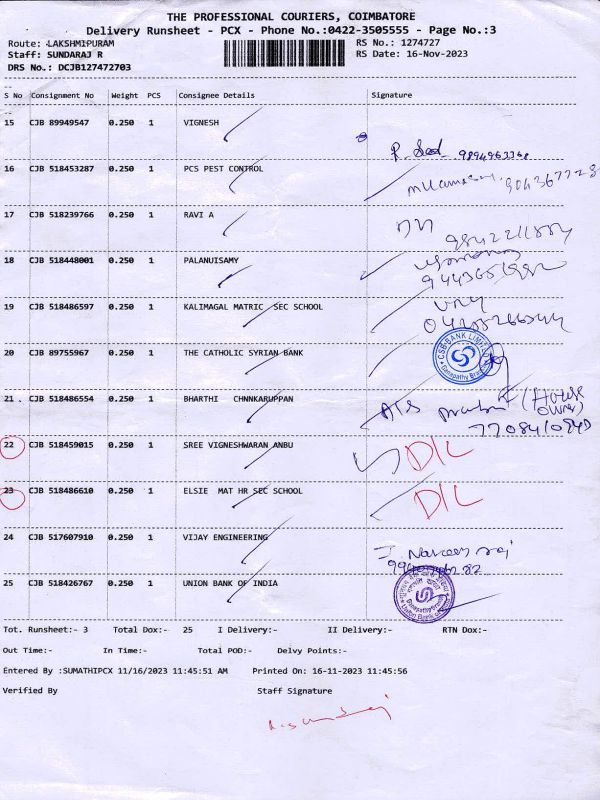 THE PROFESSIONAL COURIERS, COIMBATORE
Delivery Runsheet - PCX - Phone No.:0422-3505555 - Page No.:3
Route: LAKSHMIPURAM RS No.: 1274727
Staff: SUNDARAJ R RS Date: 16-Nov-2023
DRS No.: DCJB127472703
S No Consignment No Weight PCS Consignee Details Signature
15 CJB 89949547 0.250 1 VIGNESH
9894963368
16 CJB 518453287 0.250 1 PCS PEST CONTROL
17 CJB 518239766 0.250 1 RAVI A
18 CJB 518448001 0.250 1 PALANUISAMY
19 CJB 518486597 0.250 1 KALIMAGAL MATRIC SEC SCHOOL
20 CJB 89755967 0.250 1 THE CATHOLIC SYRIAN BANK
CSB BANK LIMITED
Ganapathy Branch
21 . CJB 518486554 0.250 1 BHARTHI CHNNKARUPPAN
(House owner)
7708410840
22 CJB 518459015 0.250 1 SREE VIGNESHWARAN ANBU D/L
23 CJB 518486610 0.250 1 ELSIE MAT HR SEC SCHOOL D/L
24 CJB 517607910 0.250 1 VIJAY ENGINEERING
J. Naveen raj
25 CJB 518426767 0.250 1 UNION BANK OF INDIA
Tot. Runsheet:- 3 Total Dox:- 25 I Delivery:- II Delivery:- RTN Dox:-
Out Time:- In Time:- Total POD:- Delvy Points:-
Entered By :SUMATHIPCX 11/16/2023 11:45:51 AM Printed On: 16-11-2023 11:45:56
Verified By Staff Signature